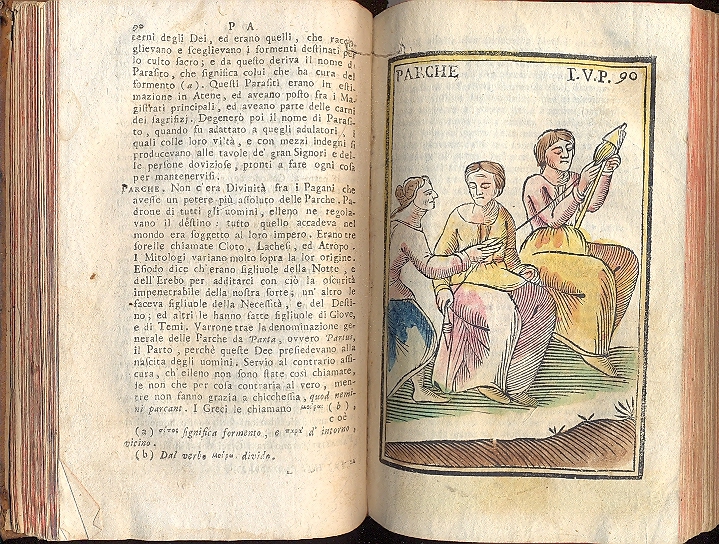 90 P A
carni degli Dei, ed erano quelli, che racco-
glievano e sceglievano i formenti destinati per
lo culto sacro; e da questo deriva il nome di
Parasito, che significa colui che ha cura del
formento (a). Questi Parasiti erano in esti-
mazione in Atene, ed aveano posto fra i Ma-
gistrati principali, ed aveano parte delle carni
dei sagrifizj. Degenerò poi il nome di Parasi-
to, quando fu adattato a quegli adulatori, i
quali colle loro viltà, e con mezzi indegni si
producevano alle tavole de' gran Signori e del-
le persone doviziose, pronti a fare ogni cosa
per mantenervisi.
PARCHE. Non c'era Divinità fra i Pagani che
avesse un potere più assoluto delle Parche. Pa-
drone di tutti gli uomini, elleno ne regola-
vano il destino: tutto quello accadeva nel
mondo era soggetto al loro impero. Erano tre
sorelle chiamate Cloto, Lachesi, ed Atropo.
I Mitologi variano molto sopra la lor origine.
Esiodo dice ch'erano figliuole della Notte, e
dell'Erebo per additarci con ciò la oscurità
impenetrabile della nostra sorte; un' altro le
faceva figliuole della Necessità, e del Desti-
no; ed altri le hanno fatte figliuole di Giove,
e di Temi. Varrone trae la denominazione ge-
nerale delle Parche da Parta, ovvero Partus,
il Parto, perchè queste Dee presiedevano alla
nascita degli uomini. Servio al contrario assi-
cura, ch' elleno non sono state così chiamate,
se non che per cosa contraria al vero, men-
tre non fanno grazia a chicchessia, quod nemi-
ni parcant. I Greci le chiamano μοῖραι (b),
cioè
(a) σῖτος significa formento, e παρὰ d' intorno,
vicino.
(b) Dal verbo μείρω divido.
PARCHE T.V.P. 90